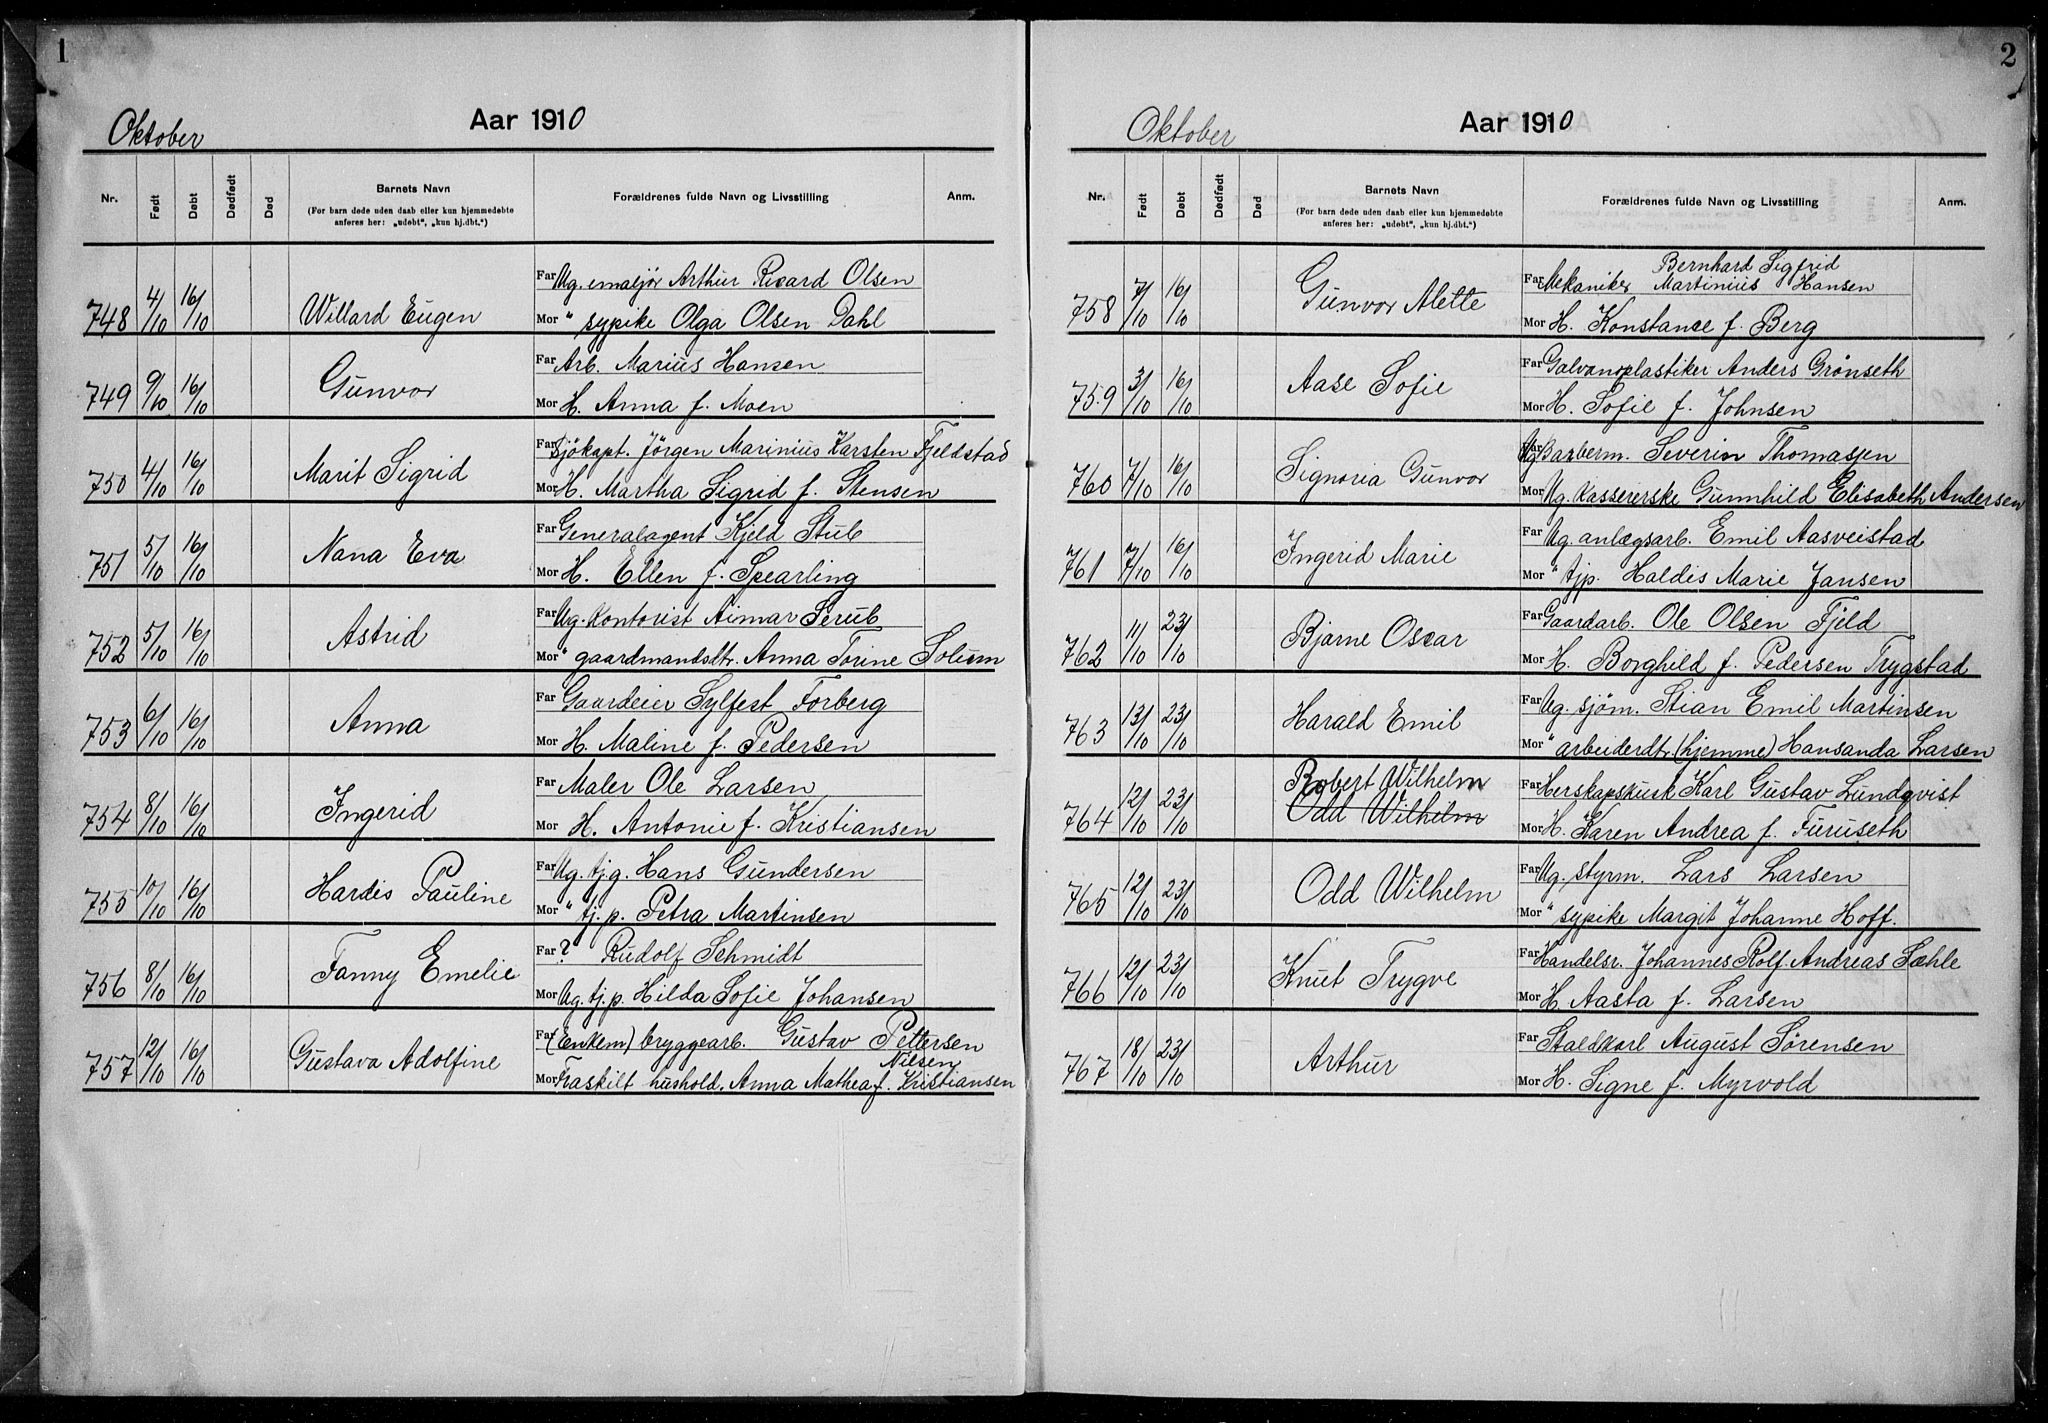 1
Oktober
Aar 1910
Nr. Født Døbt Dødfødt Død Barnets Navn Forældrenes fulde Navn og Livsstilling Anm.
(For barn døde uden daab eller kun hjemmedøbte
anføres her: „udøbt“, „kun hj.dbt.“)
Far Ug. emaljør Arthur Ricard Olsen
748 4/10 16/10 Willard Eugen Mor " sypike Olga Olsen Dahl
Far Arb. Marius Hansen
749 9/10 16/10 Gunvor Mor H. Anna f. Moen
Far Sjökapt. Jörgen Marinius Karsten Fjeldstad
750 4/10 16/10 Marit Sigrid Mor H. Martha Sigrid f. Stensen
Far Generalagent Kjeld Stub
751 5/10 16/10 Nana Eva Mor H. Ellen f. Spearling
Far Ug. Kontorist Aimar Serub
752 5/10 16/10 Astrid Mor " gaardmandsdtr. Anna Torine Solum
Far Gaardeier Sylfest Forberg
753 6/10 16/10 Anna Mor H. Maline f. Pedersen
Far Maler Ole Larsen
754 8/10 16/10 Ingerid Mor H. Antonie f. Kristiansen
Far Ug. tj.g. Hans Gundersen
755 10/10 16/10 Hardis Pauline Mor " tj.p. Petra Martinsen
Far ? Rudolf Schmidt
756 8/10 16/10 Fanny Emelie Mor Ug. tj.p. Hilda Sofie Johansen
Far (Enkem) bryggearb. Gustav Pettersen
Nilsen
757 12/10 16/10 Gustava Adolfine Mor Fraskilt hushold. Anna Mathea f. Kristiansen
2
Oktober
Aar 1910
Nr. Født Døbt Dødfødt Død Barnets Navn Forældrenes fulde Navn og Livsstilling Anm.
(For barn døde uden daab eller kun hjemmedøbte
anføres her: „udøbt“, „kun hj.dbt.“)
Bernhard Sigfrid
Far Mekaniker Martinius Hansen
758 7/10 16/10 Gunvor Alette Mor H. Konstance f. Berg
Far Galvanoplastiker Anders Grönseth
759 3/10 16/10 Aase Sofie Mor H. Sofie f. Johnsen
Far Ug. Barberm. Severin Thomassen
760 7/10 16/10 Signoria Gunvor Mor Ug. Kassererske Gunnhild Elisabeth Andersen
Far Ug. anlægsarb. Emil Aasveistad
761 7/10 16/10 Ingerid Marie Mor " tjp. Haldis Marie Jansen
Far Gaardarb. Ole Olsen Fjeld
762 11/10 23/10 Bjarne Oscar Mor H. Borghild f. Pedersen Trygstad
Far Ug. sjöm. Stian Emil Martinsen
763 13/10 23/10 Harald Emil Mor " arbeiderdtr. (hjemme) Hansanda Larsen
Robert Wilhelm Far Herskapskusk Karl Gustav Lundqvist
764 12/10 23/10 Odd Wilhelm Mor H. Karen Andrea f. Furuseth
Far Ug. styrm. Lars Larsen
765 12/10 23/10 Odd Wilhelm Mor " sypike Margit Johanne Hoff.
Far Handelsr. Johannes Rolf Andreas Sæhle
766 12/10 23/10 Knut Trygve Mor H. Aasta f. Larsen
Far Staldkarl August Sörensen
767 18/10 23/10 Arthur Mor H. Signe f. Myrvold